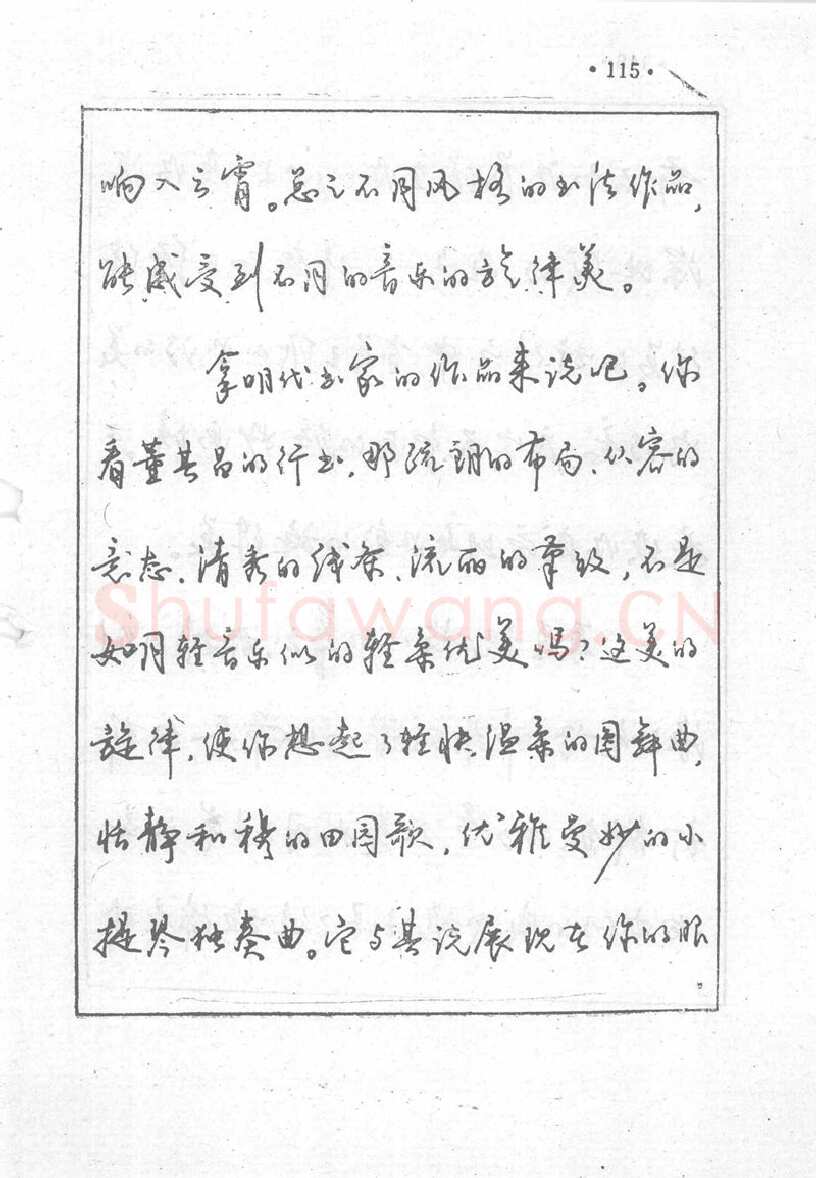 ·115·
响入云霄。总之不同风格的书法作品,
能感受到不同的音乐的旋律美。
拿明代书家的作品来说吧。你
看董其昌的行书,那疏朗的布局、从容的
意态、清秀的线条、流丽的笔致,不是
如同轻音乐似的轻柔优美吗?这美的
旋律,使你想起了轻快温柔的圆舞曲,
恬静和穆的田园歌,优雅曼妙的小
提琴独奏曲。它与其说展现在你的眼
Shufawang.CN